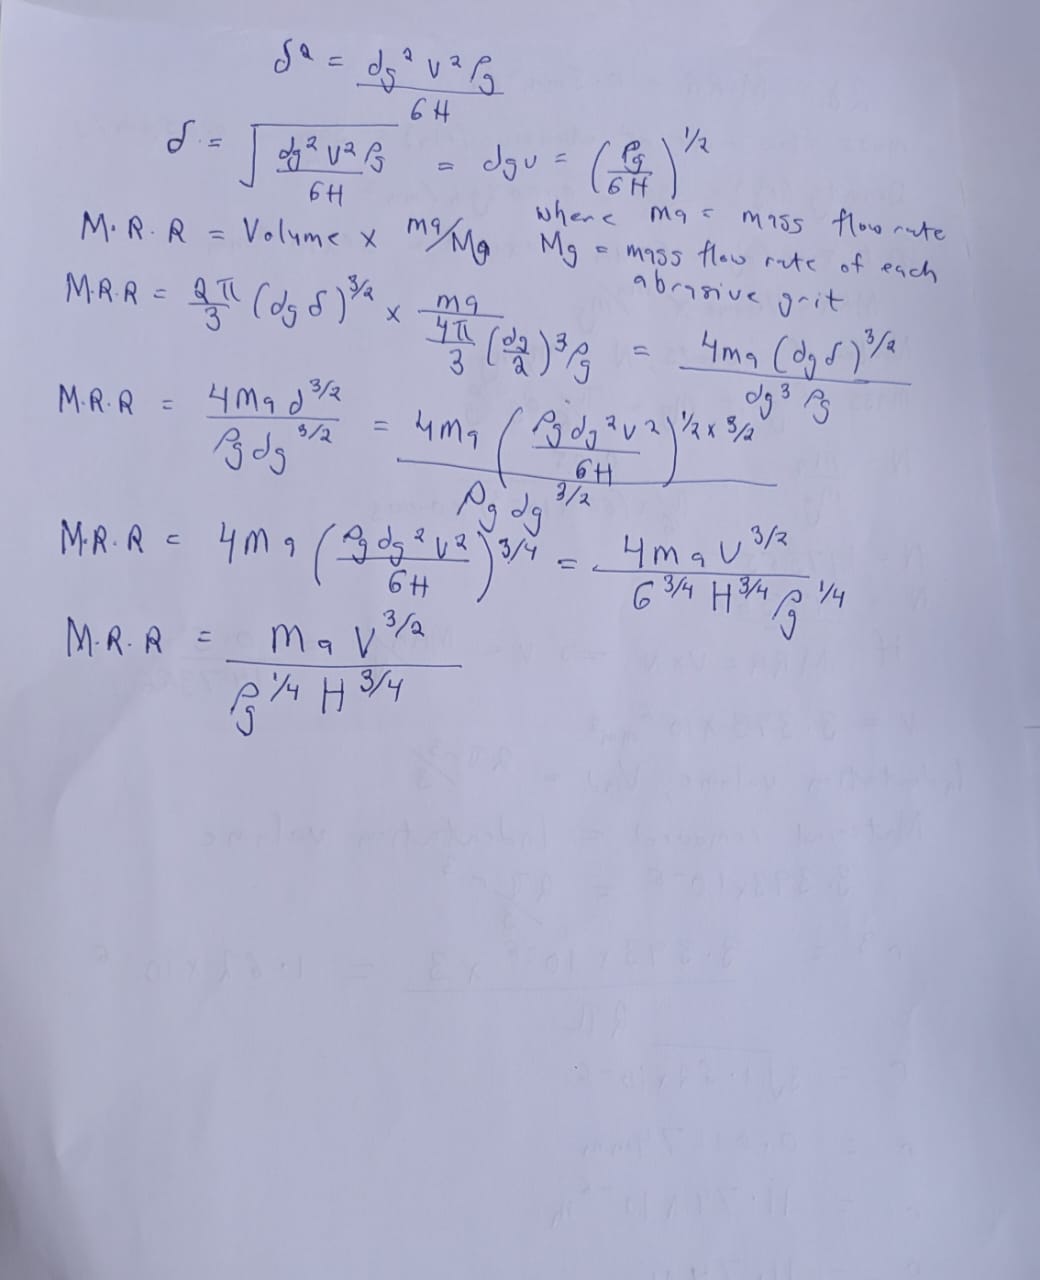 δ² = dg² v² ρg / 6H
δ = √(dg² v² ρg / 6H) = dgv = (ρg / 6H)^1/2
M.R.R = Volume x ma/Mg where ma = mass flow rate
Mg = mass flow rate of each abrasive grit
M.R.R = 2π/3 (dg δ)^3/2 x ma / 4π/3 (dg/2)^3 ρg = 4ma (dg δ)^3/2 / dg^3 ρg
M.R.R = 4ma δ^3/2 / ρg dg^3/2 = 4ma (ρg dg² v² / 6H)^1/2 x 3/2 / ρg dg^3/2
M.R.R = 4ma (ρg dg² v² / 6H)^3/4 = 4ma v^3/2 / 6^3/4 H^3/4 ρg^1/4
M.R.R = ma v^3/2 / ρg^1/4 H^3/4